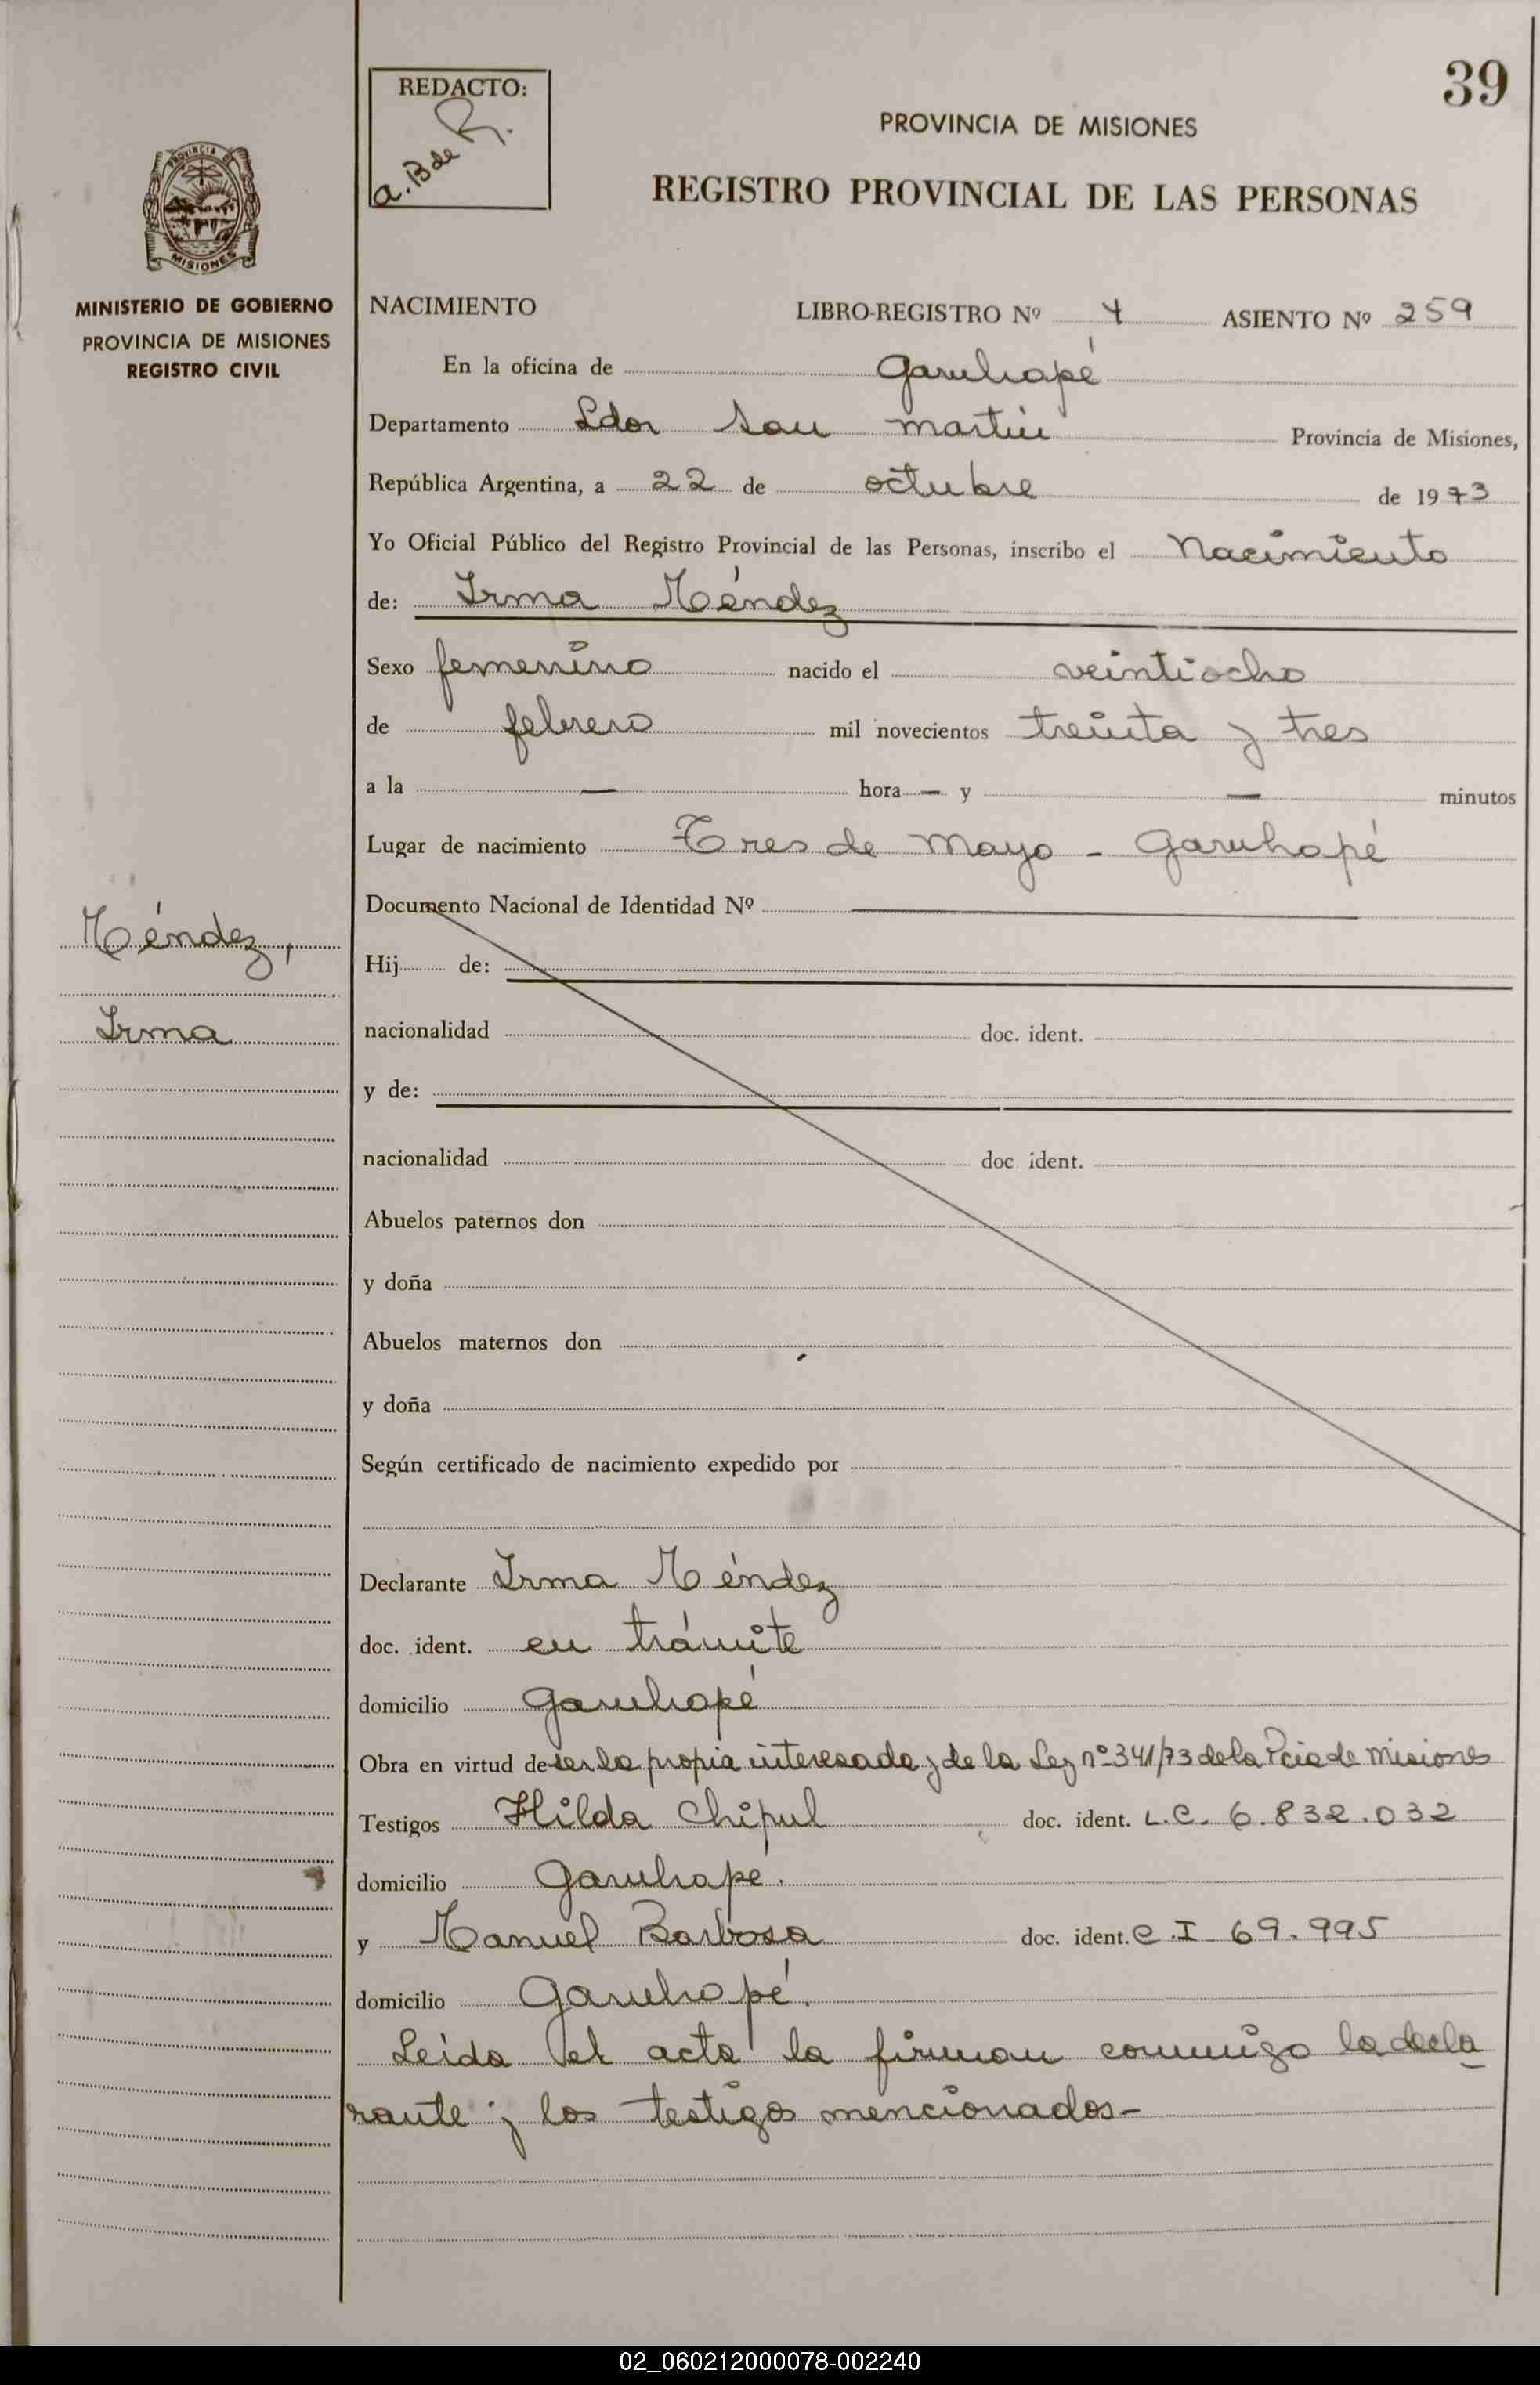 39
REDACTO:
a. B de R.
PROVINCIA DE MISIONES
REGISTRO PROVINCIAL DE LAS PERSONAS
PROVINCIA DE
MISIONES
MINISTERIO DE GOBIERNO
PROVINCIA DE MISIONES
REGISTRO CIVIL
NACIMIENTO LIBRO-REGISTRO Nº 4 ASIENTO Nº 259
En la oficina de Garuhapé
Departamento Ldor San Martin Provincia de Misiones,
República Argentina, a 22 de octubre de 1973
Yo Oficial Público del Registro Provincial de las Personas, inscribo el Nacimiento
de: Irma Méndez
Sexo femenino nacido el veintiocho
de febrero mil novecientos treinta y tres
a la — hora — y — minutos
Lugar de nacimiento Tres de Mayo - Garuhapé
Documento Nacional de Identidad Nº
Méndez,
Irma
Hij de:
nacionalidad doc. ident.
y de:
nacionalidad doc ident.
Abuelos paternos don
y doña
Abuelos maternos don
y doña
Según certificado de nacimiento expedido por
Declarante Irma Méndez
doc. ident. en trámite
domicilio Garuhapé
Obra en virtud de ser la propia interesada y de la Ley nº 341/73 de la Pcia de Misiones
Testigos Hilda Chipul doc. ident. L.C. 6.832.032
domicilio Garuhapé.
y Manuel Barbosa doc. ident. C.I 69.995
domicilio Garuhapé.
Leida el acta la firman conmigo la decla
rante y los testigos mencionados-
02_060212000078-002240